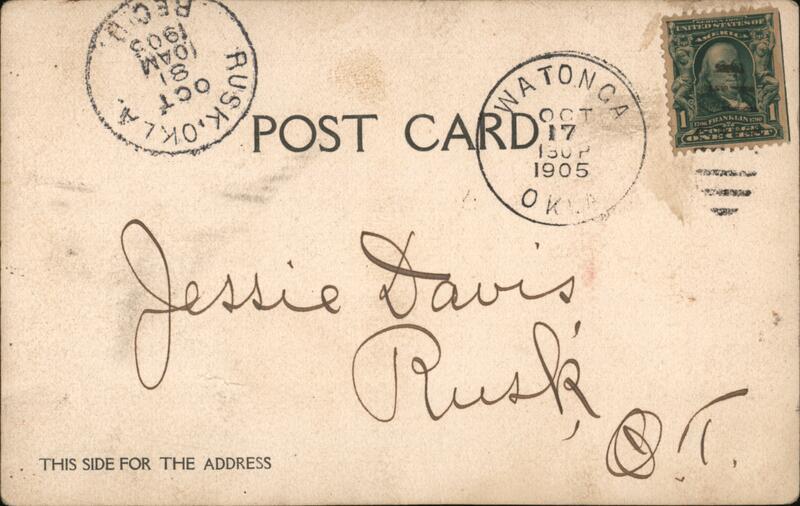 RUSK, OKLA.
OCT
18
10AM
1905
REC'D.
POST CARD
WATONGA
OCT
17
130P
1905
OKLA
SERIES 1902
UNITED STATES OF
AMERICA
1 1706 FRANKLIN 1790 1
POSTAGE
ONE CENT
Jessie Davis
Rusk,
O.T.
THIS SIDE FOR THE ADDRESS